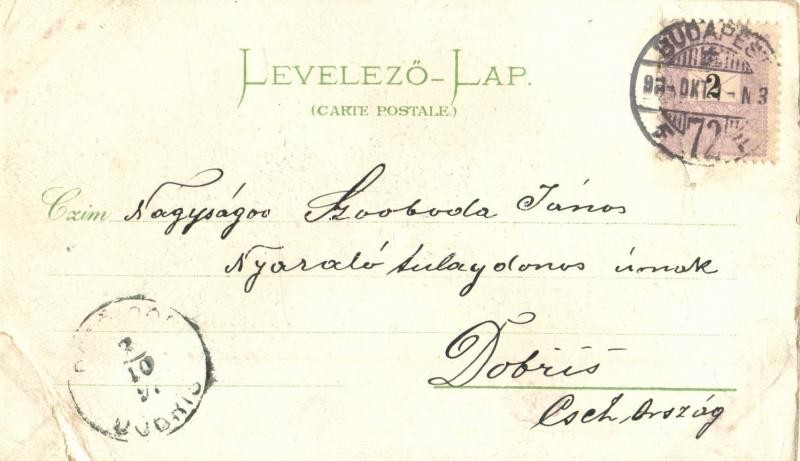 LEVELEZŐ-LAP.
(CARTE POSTALE)
BUDAPEST
OKT. - N3
2
72
Czim Nagyságos Szvoboda János
Nyaraló tulaydonos úrnak
Dobřiš
Cseh Ország
2/10
DOBŘÍŠ